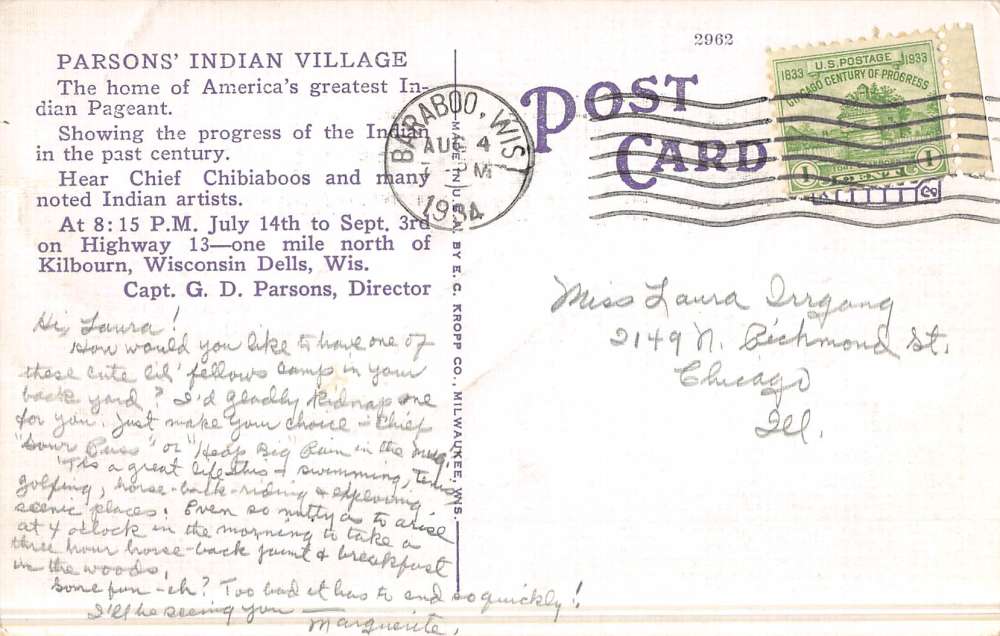 2962
PARSONS' INDIAN VILLAGE
The home of America's greatest In-
dian Pageant.
Showing the progress of the Indian
in the past century.
Hear Chief Chibiaboos and many
noted Indian artists.
At 8:15 P.M. July 14th to Sept. 3rd
on Highway 13—one mile north of
Kilbourn, Wisconsin Dells, Wis.
Capt. G. D. Parsons, Director
Hi, Laura!
How would you like to have one of
these cute lil' fellows camp in your
back yard? I'd gladly kidnap one
for you. Just make your choice - Chief
"Sour Puss" or "Heap Big" Pain in the Mug.
'Tis a great life this - swimming, tennis,
golfing, horse-back-riding & exploring
scenic places! Even so nutty as to arise
at 4 o'clock in the morning to take a
three hour horse-back jaunt & breakfast
in the woods.
Some fun - eh? Too bad it has to end so quickly!
I'll be seeing you —
Marguerite.
MADE IN U.S.A. BY E. C. KROPP CO., MILWAUKEE, WIS.
BARABOO, WIS.
AUG 4
M
1934
POST
CARD
U.S. POSTAGE
1833 1933
CHICAGO CENTURY OF PROGRESS
1 CENT 1
Miss Laura Irrgang
2149 N. Richmond St.
Chicago
Ill.